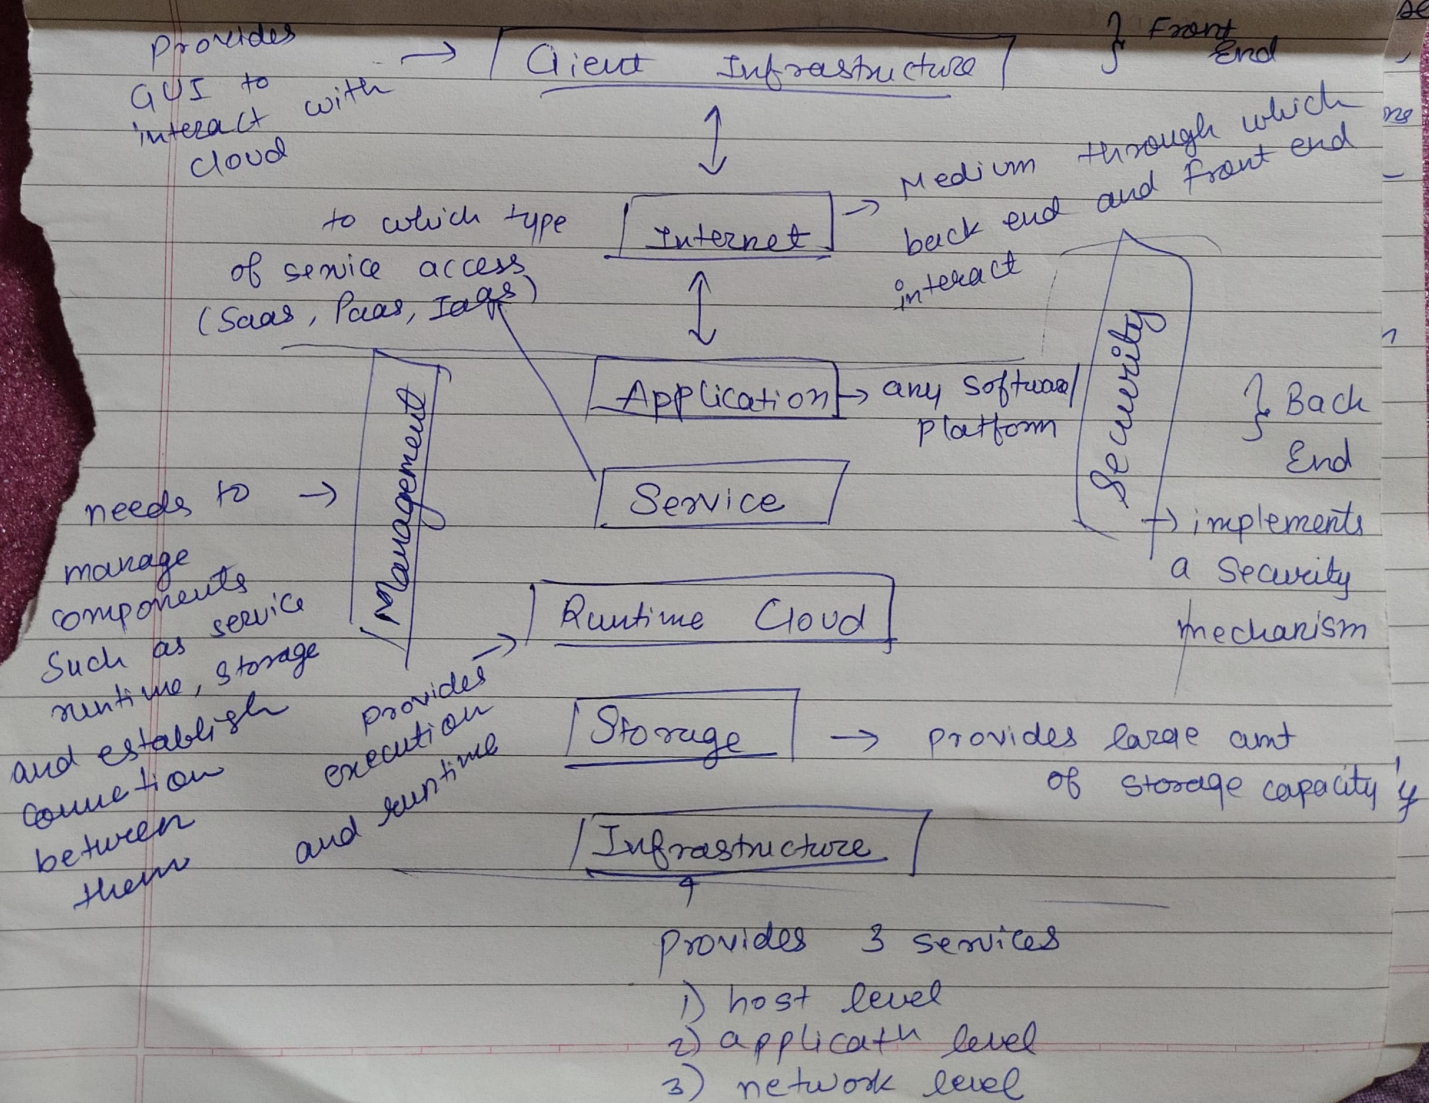 Provides
GUI to
interact with
cloud
→ Client Infrastructure
} Front
End
Internet
→ Medium through which
back end and front end
interact
to which type
of service access
(Saas, Paas, Iaas)
Application → any software
platform
Security
} Back
End
→ implements
a security
mechanism
Service
Management
needs to →
manage
components
such as service
runtime, storage
and establish
connection
between
them
Runtime Cloud
provides
execution
and runtime
Storage → provides large amt
of storage capacity
Infrastructure
provides 3 services
1) host level
2) applicatn level
3) network level